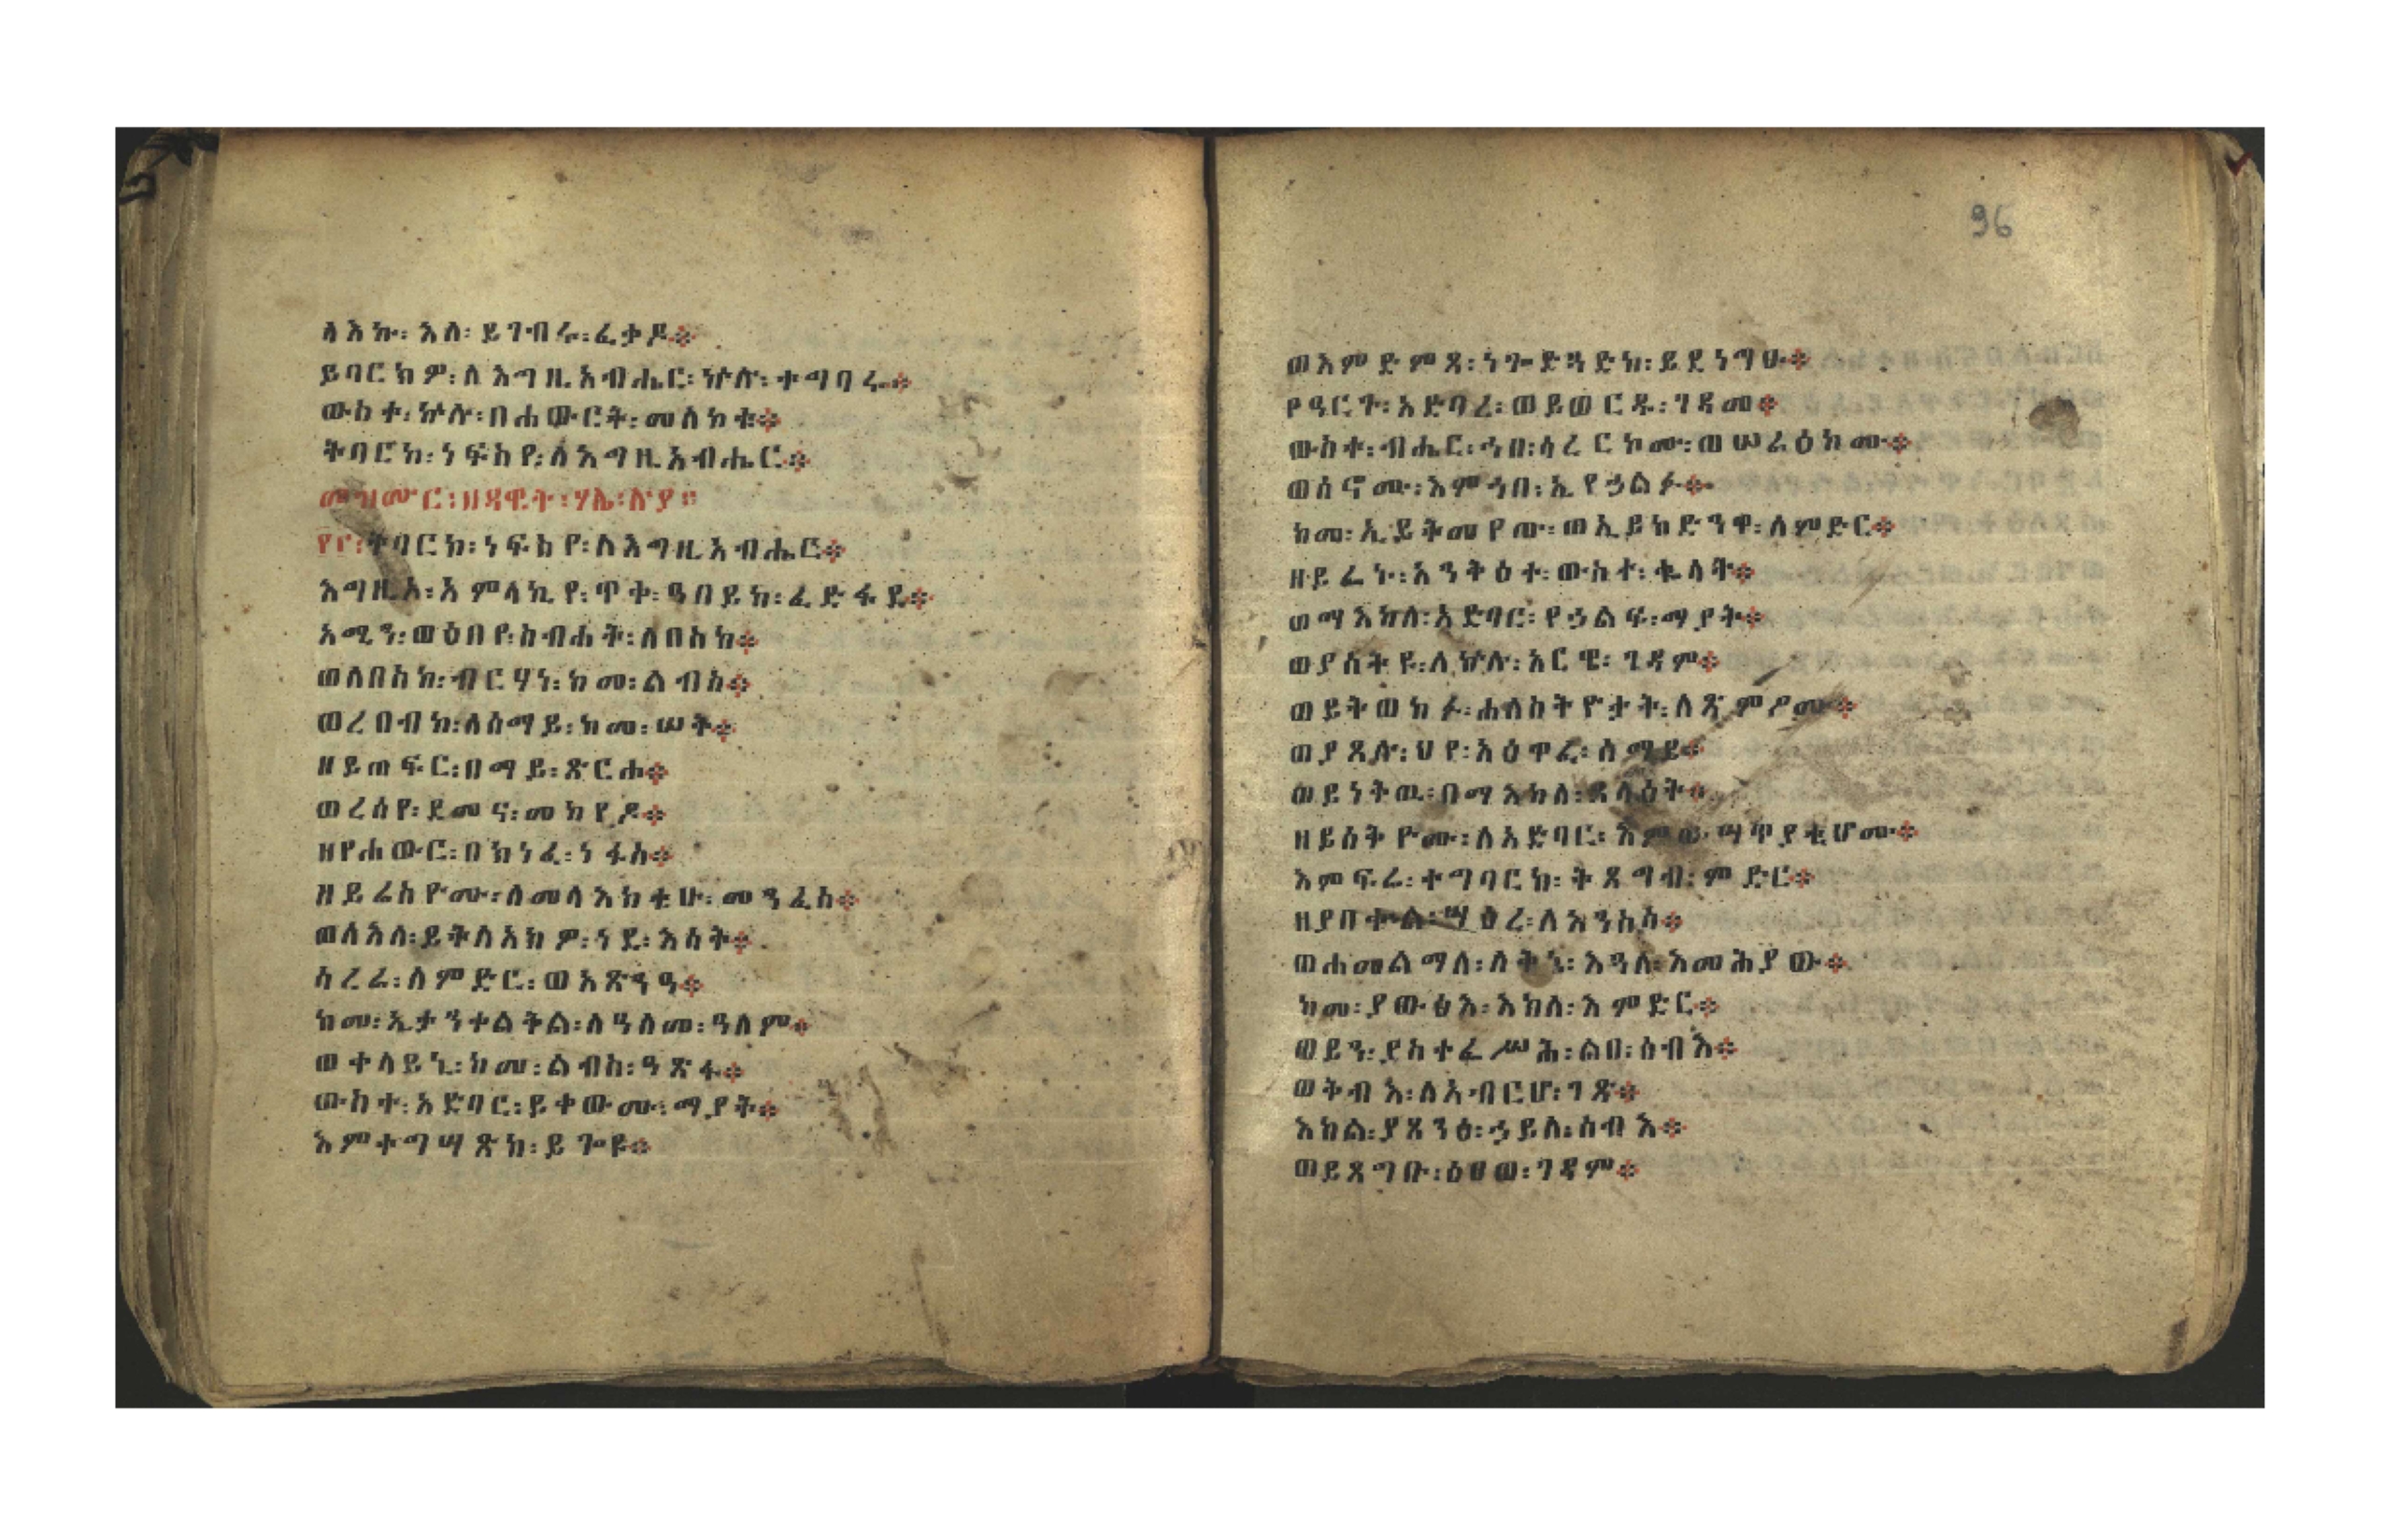 ላእኩ፡ እለ፡ ይገብሩ፡ ፈቃዶ፨
ይባርክዎ፡ ለእግዚአብሔር፡ ኵሉ፡ ተግባሩ፨
ውስተ፡ ኵሉ፡ በሐውርት፡ መለኮቱ፨
ትባርክ፡ ነፍስየ፡ ለእግዚአብሔር፨
መዝሙር፡ ዘዳዊት፡ ሃሌ፡ ሉያ።
፻፫፡ ትባርክ፡ ነፍስየ፡ ለእግዚአብሔር፨
እግዚአ፡ አምላኪየ፡ ጥቀ፡ ዓበይከ፡ ፈድፋደ፨
አሚን፡ ወዕበየ፡ ስብሐት፡ ለበስከ፨
ወለበስከ፡ ብርሃነ፡ ከመ፡ ልብስ፨
ወረበብከ፡ ለሰማይ፡ ከመ፡ ሠቅ፨
ዘይጠፍር፡ በማይ፡ ጽርሐ፨
ወረሰየ፡ ደመና፡ መከየዶ፨
ዘየሐውር፡ በክነፈ፡ ነፋስ፨
ዘይሬስዮሙ፡ ለመላእክቲሁ፡ መንፈስ፨
ወለእለ፡ ይትለአክዎ፡ ነደ፡ እሳት፨
ሳረራ፡ ለምድር፡ ወአጽንዓ፨
ከመ፡ ኢታንተልትል፡ ለዓለመ፡ ዓለም፨
ወተላይኒ፡ ከመ፡ ልብስ፡ ዓጽፋ፨
ውስተ፡ አድባር፡ ይቀውሙ፡ ማያት፨
እምተግሣጽከ፡ ይጐዩ፨
96
ወእምድምፀ፡ ነጐድጓድከ፡ ይደነግፁ፨
የዓርጉ፡ አድባረ፡ ወይወርዱ፡ ገዳመ፨
ውስተ፡ ብሔር፡ ኀበ፡ ሳረርኮሙ፡ ወሣሬዕኮሙ፨
ወሰኖሙ፡ እምኀበ፡ ኢየኃልፉ፨
ከመ፡ ኢይትመየጡ፡ ወኢይክድንዋ፡ ለምድር፨
ዘይፌኑ፡ አንቅዕተ፡ ውስተ፡ ቈላት፨
ወማእከለ፡ አድባር፡ የኃልፍ፡ ማያት፨
ወያሰትዩ፡ ለኵሉ፡ አርዌ፡ ገዳም፨
ወይትወከፉ፡ ሐለስትዮታት፡ ለጽምዖሙ፨
ወያጸሉ፡ ህየ፡ አዕዋፈ፡ ሰማይ፨
ወይነትዉ፡ በማእከለ፡ ጸላዕት፨
ዘይሰትዮሙ፡ ለአድባር፡ እምውሣጥያቲሆሙ፨
እምፍሬ፡ ተግባርከ፡ ትጸግብ፡ ምድር፨
ዘያበቍል፡ ሣዕረ፡ ለእንስሳ፨
ወሐመልማለ፡ ለቅኔ፡ እጓለ፡ እመሕያው፨
ከመ፡ ያውፅእ፡ እክለ፡ እምድር፨
ወይን፡ ያስተፌሥሕ፡ ልበ፡ ሰብእ፨
ወቅብእ፡ ለአብርሆ፡ ገጽ፨
እክል፡ ያጸንዕ፡ ኃይለ፡ ሰብእ፨
ወይጸግቡ፡ ዕፀወ፡ ገዳም፨